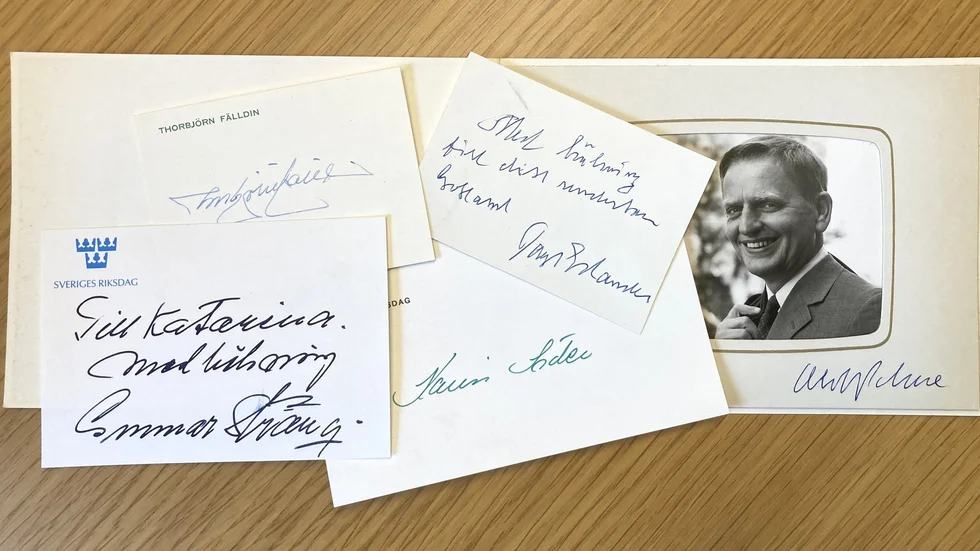 THORBJÖRN FÄLLDIN
Thorbjörn Fälldin
Med hälsning
till ditt underbara
Gotland
Tage Erlander
SVERIGES RIKSDAG
Till Katarina.
med hälsning
Gunnar Sträng.
SDAG
Karin Söder
Olof Palme